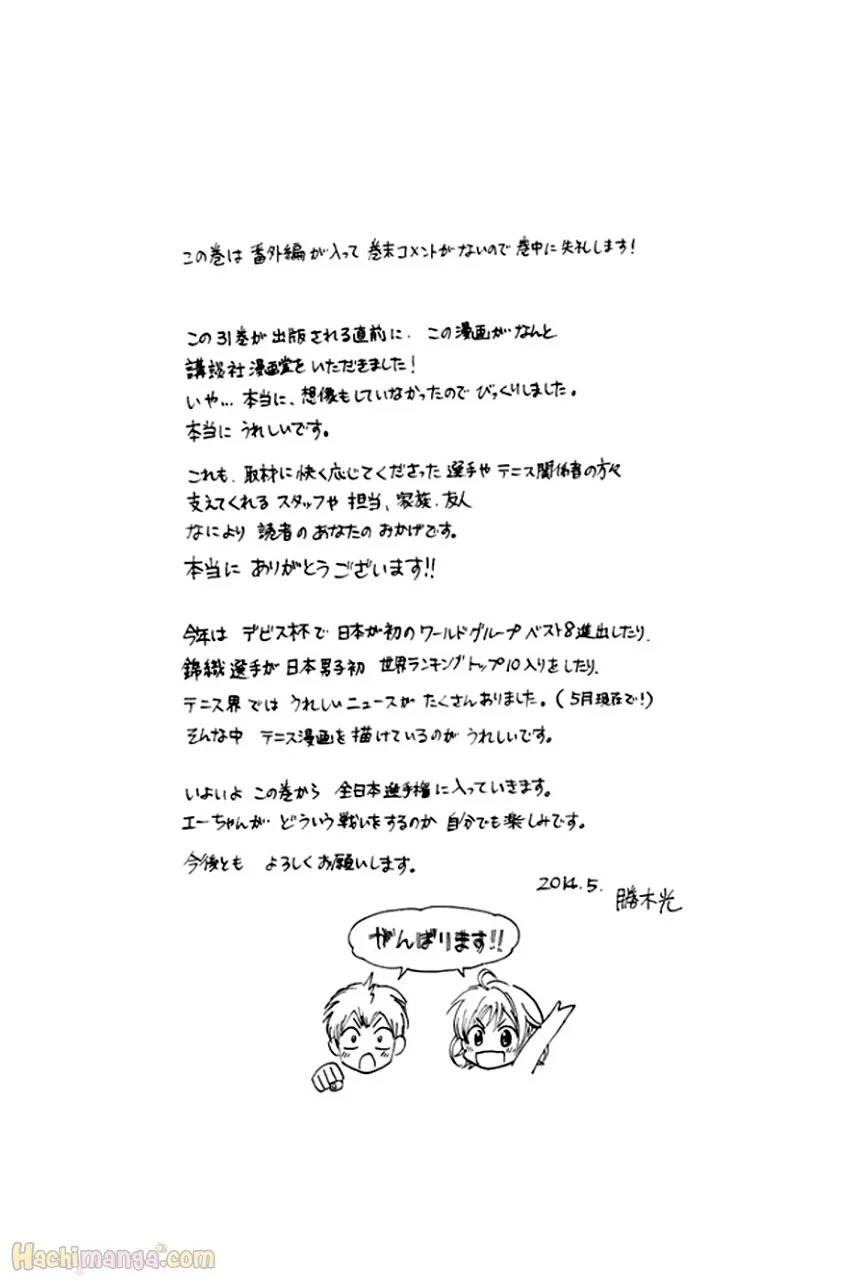 この巻は 番外編が入って 巻末コメントがないので 巻中に失礼します!
この31巻が出版される直前に、この漫画がなんと
講談社漫画賞をいただきました!
いや… 本当に、想像もしていなかったので びっくりしました。
本当に うれしいです。
これも、取材に快く応じてくださった 選手や テニス関係者の方々
支えてくれる スタッフや 担当、家族、友人
なにより 読者のあなたの おかげです。
本当に ありがとうございます!!
今年は デビス杯で 日本が初のワールドグループ ベスト8進出したり、
錦織選手が 日本男子初 世界ランキングトップ10入りをしたり、
テニス界では うれしいニュースが たくさんありました。(5月現在で!)
そんな中 テニス漫画を 描けているのが うれしいです。
いよいよ この巻から 全日本選手権に入っていきます。
エーちゃんが どういう戦いをするのか 自分でも楽しみです。
今後とも よろしくお願いします。
2014.5.
勝木光
がんばります!!
Hachimanga.com